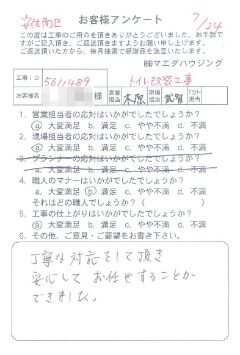 安佐南区 お客様アンケート 7/24
この度は工事のご用命を頂きありがとうございました。お手数で
すがご記入頂き、ご返送頂きますようお願い申し上げます。
ご返送頂いた方から、毎月抽選で感謝品を進呈致します。
㈱マエダハウジング
工事ID 5611489 トイレ改装工事
お客様名 様 営業担当 木原 現場担当 武智 担当
1. 営業担当者の応対はいかがでしたでしょうか?
a 大変満足 b. 満足 c. やや不満 d. 不満
2. 現場担当者の応対はいかがでしたでしょうか?
a 大変満足 b. 満足 c. やや不満 d. 不満
3. プランナーの応対はいかがでしたでしょうか?
a. 大変満足 b. 満足 c. やや不満 d. 不満
4. 職人のマナーはいかがでしたでしょうか?
a. 大変満足 b 満足 c. やや不満 d. 不満
それはどの職人でしょうか?( )
5. 工事の仕上がりはいかがでしたでしょうか?
a 大変満足 b. 満足 c. やや不満 d. 不満
6. その他、ご意見・ご要望をお書き下さい。
丁寧な対応をして頂き
安心してお任せすることが
できました。